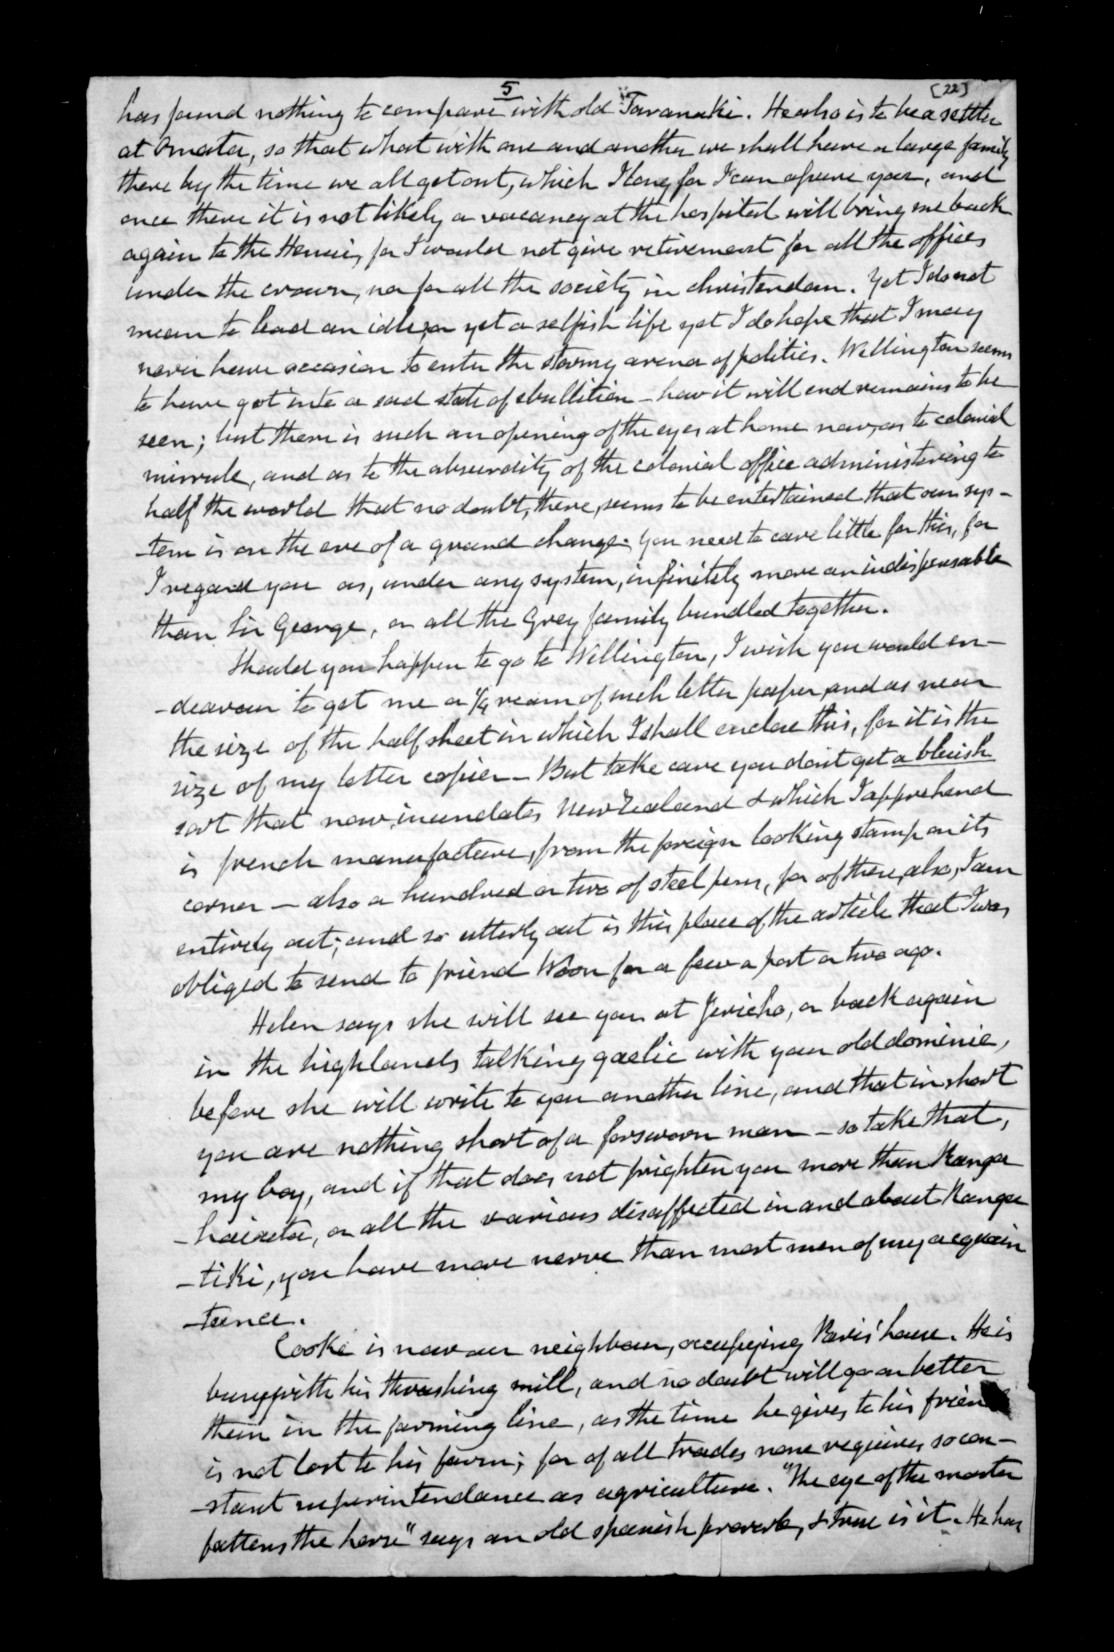 5
[22]
has found nothing to compare with old Taranaki. He also is to be a settler
at Omata, so that what with one and another we shall have a large family
there by the time we all get out, which I long for I can assure you, and
once there it is not likely a vacancy at the hospital will bring me back
again to the Henui, for I would not give retirement for all the offices
under the crown, nor for all the society in christendom. Yet I do not
mean to lead an idle, or yet a selfish life yet I do hope that I may
never have occasion to enter the stormy arena of politics. Wellington seems
to have got into a sad state of ebullition – how it will end remains to be
seen; but there is such an opening of the eyes at home now, as to colonial
misrule, and as to the absurdity of the colonial office administering to
half the world that no doubt, there, seems to be entertained that our sys-
-tem is on the eve of a grand change. You need to care little for this, for
I regard you as, under any system, infinitely more an indispensable
than Sir George, or all the Grey family bundled together.
Should you happen to go to Wellington, I wish you would en-
-deavour to get me a 1/4 ream of such letter paper, and as near
the size of the half sheet in which I shall enclose this, for it is the
size of my letter copier – But take care you don't get a bluish
sort that now inundates New Zealand & which I apprehend
is french manufacture, from the foreign looking stamp on its
corner – also a hundred or two of steel pens, for of these, also, I am
entirely out; and so utterly out is this place of the article that I was
obliged to send to friend Woon for a few a post or two ago.
Helen says she will see you at Jericho, or back again
in the highlands talking gaelic with your old dominie,
before she will write to you another line, and that in short
you are nothing short of a forsworn man – so take that,
my boy, and if that does not frighten you more than Ranga
-haiata, or all the various disaffected in and about Rangi
-tiki, you have more nerve than most men of my acquain
-tance.
Cooke is now our neighbour, occupying Davis' house. He is
busy with his thrashing mill, and no doubt will go on better
then in the farming line, as the time he gives to his friends
is not lost to his farm; for of all trades none requires so con-
-stant superintendance as agriculture. "The eye of the master
fattens the horse" says an old spanish proverb, & true is it. He has